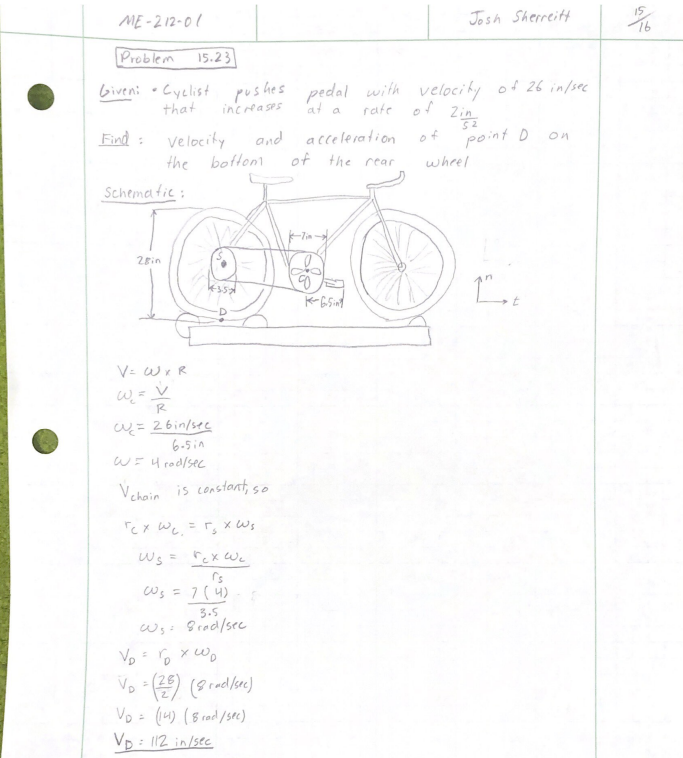 ME-212-01
Josh Sherreitt
15/16
Problem 15.23
Given: • Cyclist pushes pedal with velocity of 26 in/sec
that increases at a rate of 2in/s2
Find: Velocity and acceleration of point D on
the bottom of the rear wheel
Schematic:
7in
28in
S
3.5"
6.5in
D
n
t
V = ω x R
ωc = V/R
ωc = 26in/sec / 6.5in
ω = 4 rad/sec
Vchain is constant, so
rc x ωc = rs x ωs
ωs = rc x ωc / rs
ωs = 7(4) / 3.5
ωs = 8 rad/sec
VD = rD x ωD
VD = (28/2) (8 rad/sec)
VD = (14) (8 rad/sec)
VD = 112 in/sec